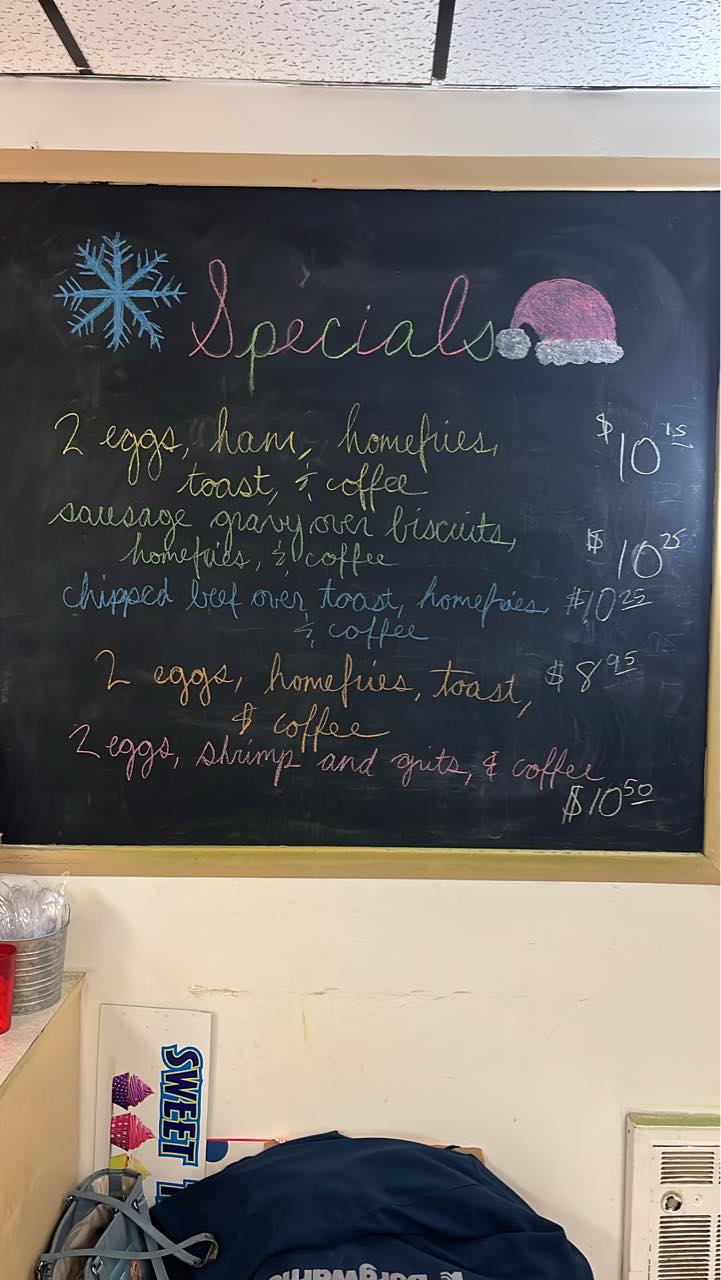 Specials
2 eggs, ham, homefries, $10 15
toast, & coffee
sausage gravy over biscuits,
homefries, & coffee $10 25
chipped beef over toast, homefries $10 25
& coffee
2 eggs, homefries, toast, $8 95
& coffee
2 eggs, shrimp and grits, & coffee
$10 50
SWEET